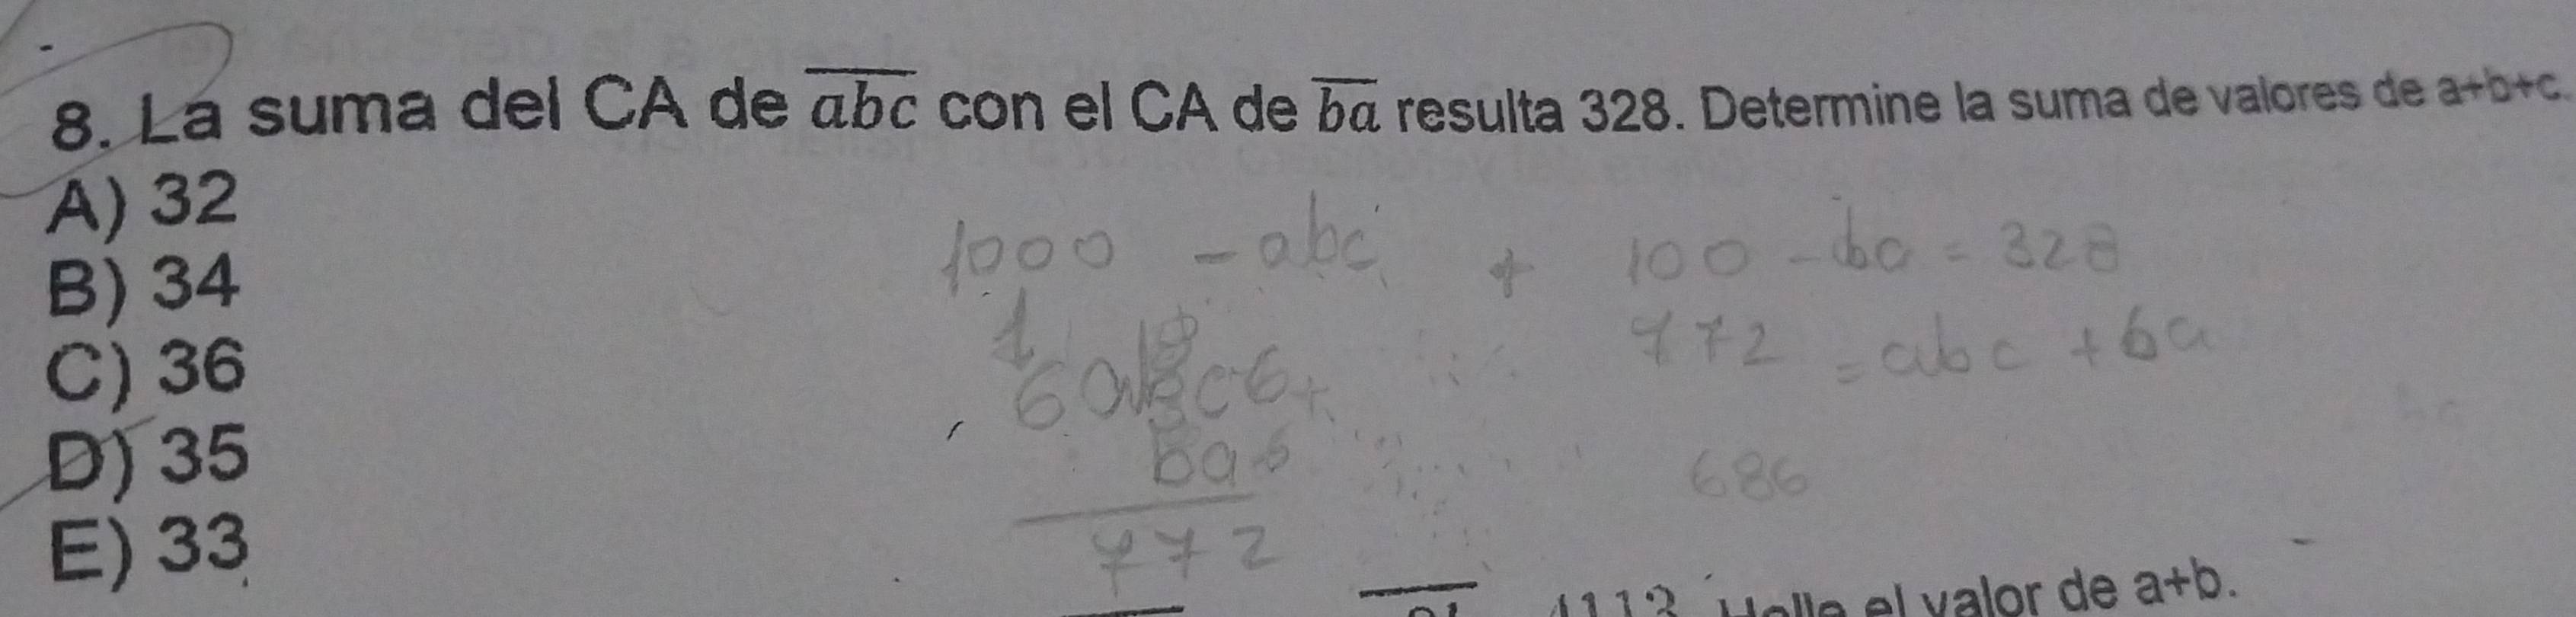 8. La suma del CA de abc con el CA de ba resulta 328. Determine la suma de valores de a+b+c.
A) 32
B) 34
C) 36
D) 35
E) 33
1000 - abc + 100 - ba = 328
772 = abc + ba
6 c 6 +
ba 6
772
686
el valor de a+b.